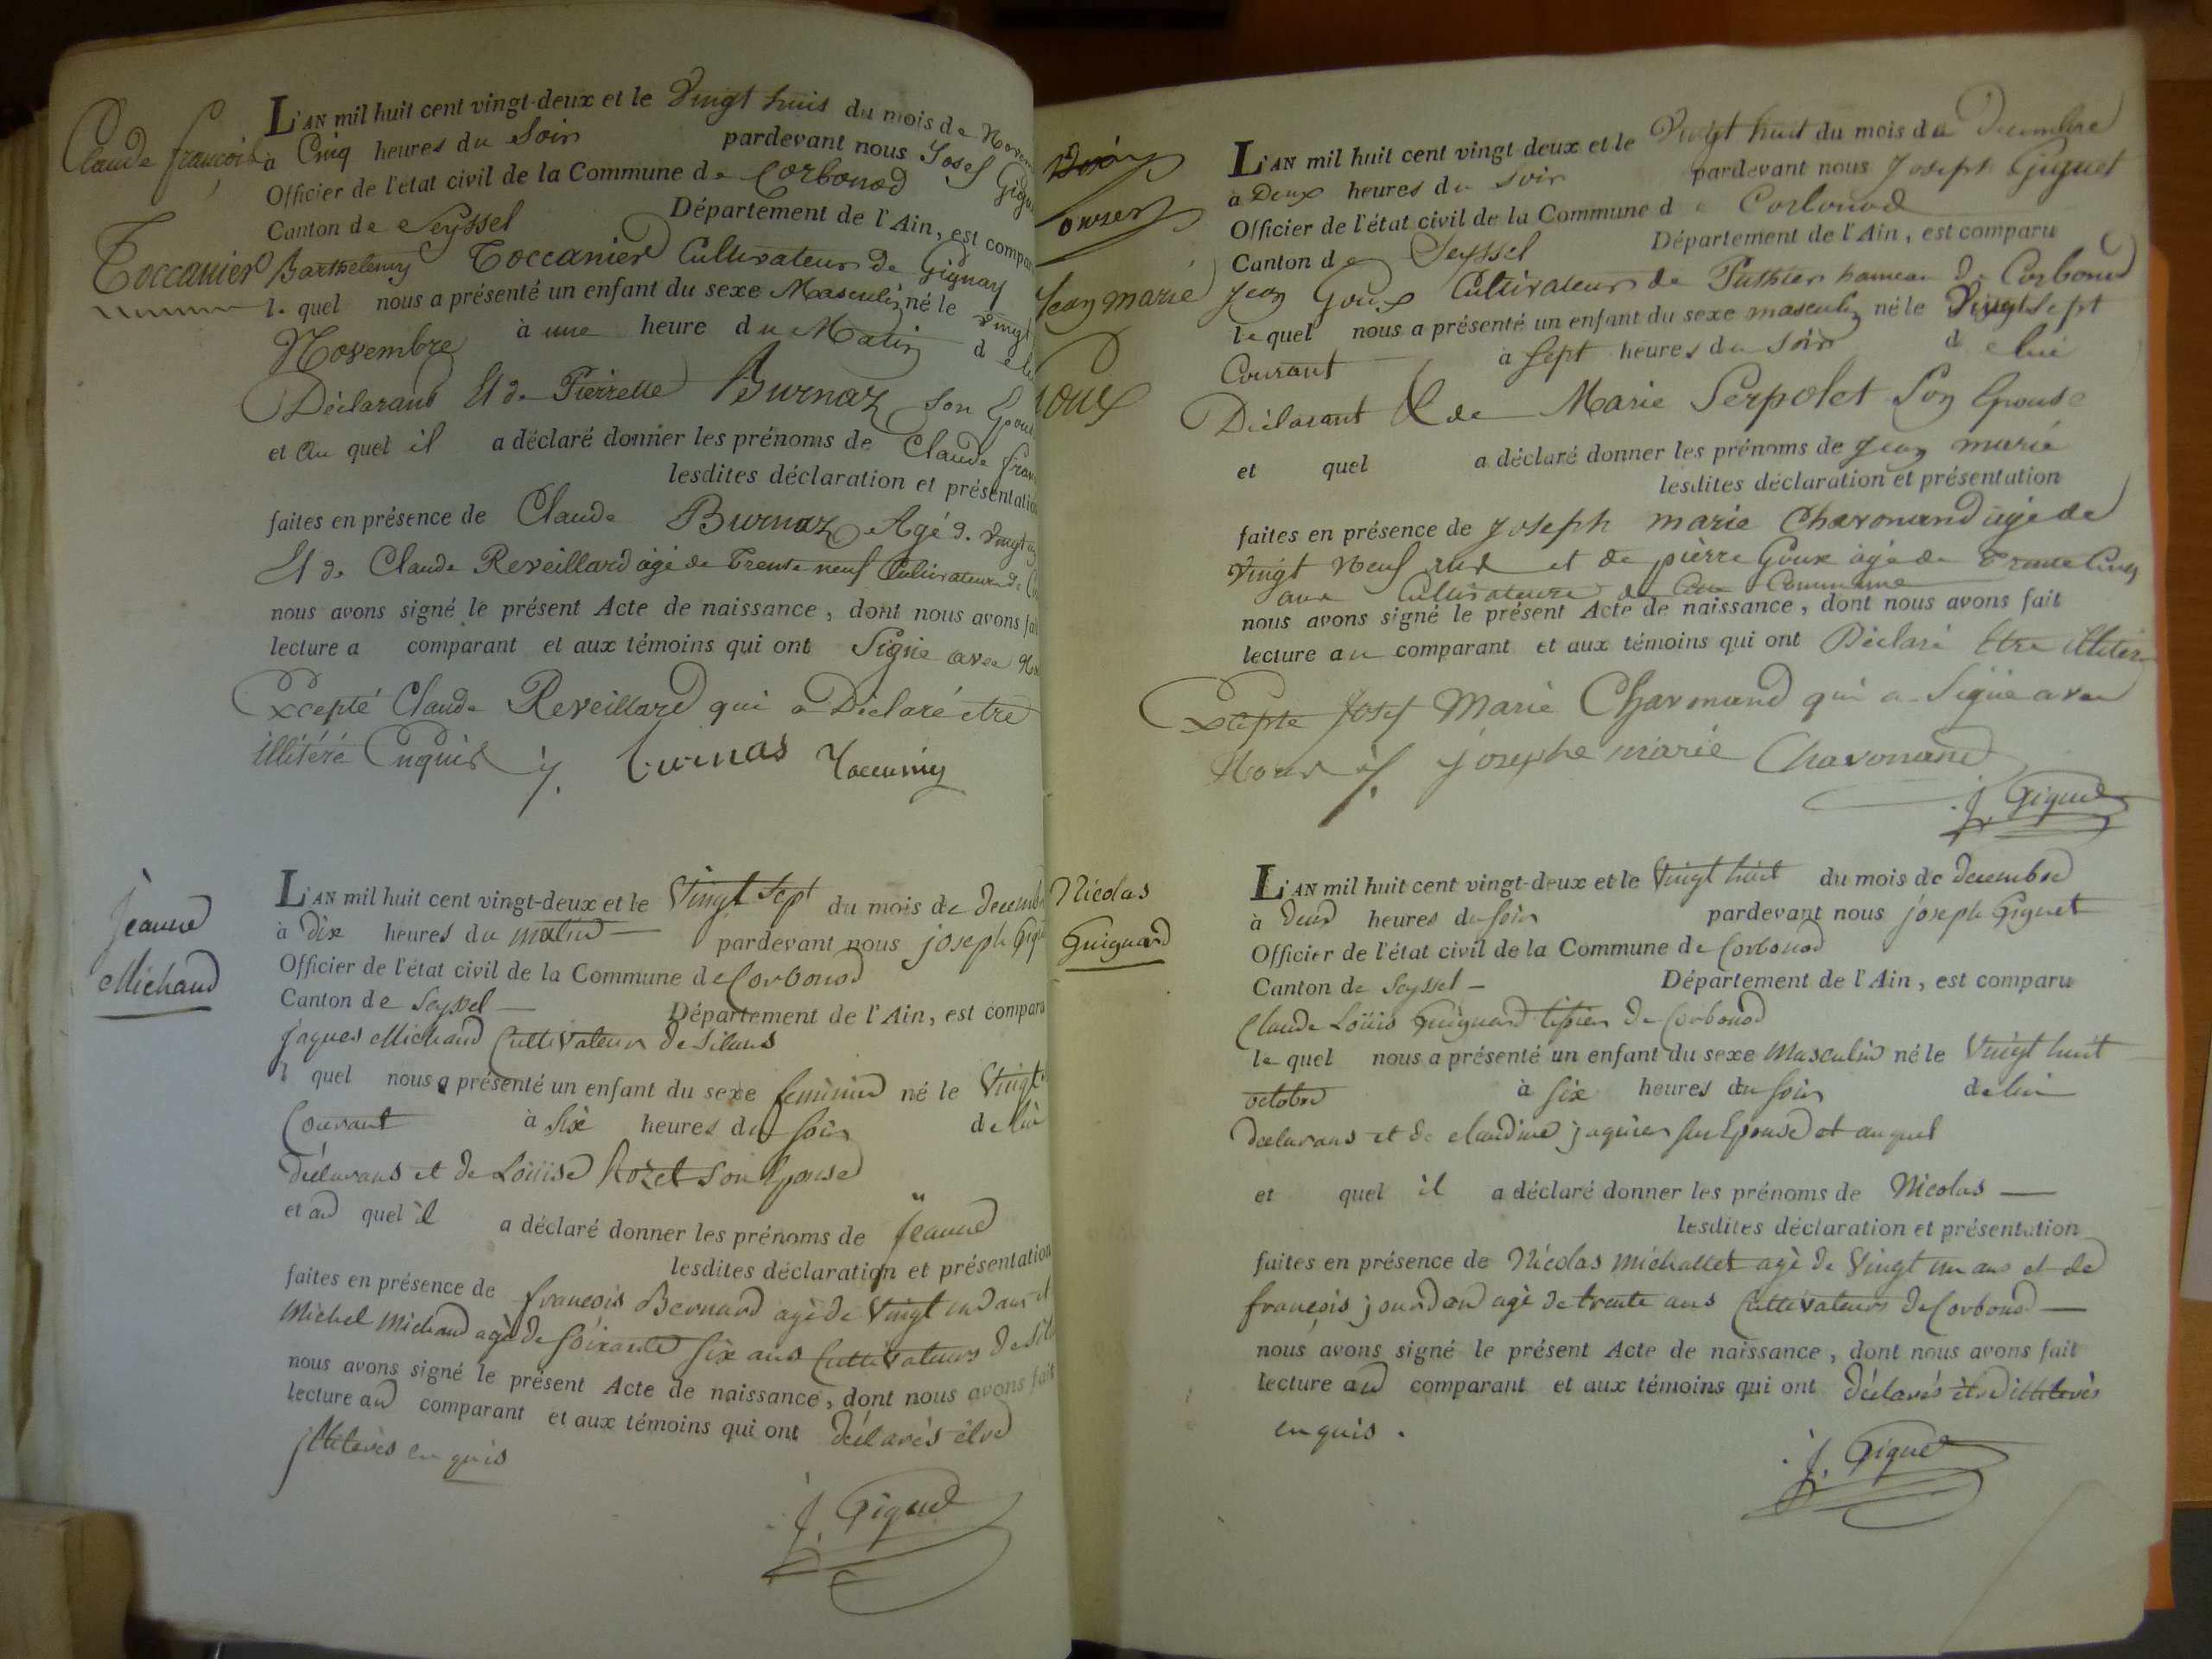 Claude françois
Toccanier
L'AN mil huit cent vingt-deux et le Vingt huit du mois de
à Cinq heures du Soir pardevant nous Josef
Officier de l'état civil de la Commune de Corbonod
Canton de Seyssel Département de l'Ain, est compar
Barthelemy Toccanier Cultivateur de Gignay
le quel nous a présenté un enfant du sexe Masculin né le vingt
Novembre à une heure du Matin de
Déclarant Et de Pierrette Burnaz Son Epouse
et Au quel il a déclaré donner les prénoms de Claude fran
lesdites déclaration et présentation
faites en présence de Claude Burnaz Agé de vingt
Et de Claude Reveillard âgé de Trente neuf Cultivateurs de
nous avons signé le présent Acte de naissance, dont nous avons fai
lecture a comparant et aux témoins qui ont Signé avec
Excepté Claude Reveillard qui a Déclaré être
illitéré Enquis y.
Jeanne
Michaud
L'AN mil huit cent vingt-deux et le Vingt Sept du mois de decemb
à dix heures du matin pardevant nous joseph
Officier de l'état civil de la Commune de Corbonod
Canton de Seyssel Département de l'Ain, est comparu
jaques Michaud Cultivateur de Silans
l quel nous a présenté un enfant du sexe feminin né le Vingt
Courant à Six heures du soir de lui
déclarans et de Loüise Rozet son Epouse
et au quel il a déclaré donner les prénoms de Jeanne
lesdites déclaration et présentation
faites en présence de françois Bernard agé de Vingt un ans et
Michel Michaud agé de soixante six ans Cultivateurs de
nous avons signé le présent Acte de naissance, dont nous avons fait
lecture au comparant et aux témoins qui ont déclarés être
jllitérés enquis
J. Giguet
Jean marie
Goux
L'AN mil huit cent vingt-deux et le Vingt huit du mois de Decembre
à Deux heures du soir pardevant nous Joseph Giguet
Officier de l'état civil de la Commune de Corbonod
Canton de Seyssel Département de l'Ain, est comparu
Jean Goux Cultivateur de Puthier hameau de Corbonod
le quel nous a présenté un enfant du sexe masculin né le Vingt sept
Courant à Sept heures du Soir de lui
Déclarant & de Marie Serpolet Son Epouse
et quel a déclaré donner les prénoms de Jean marie
lesdites déclaration et présentation
faites en présence de Joseph marie Chavonand âgé de
Vingt Neuf ans et de pierre Goux âgé de Trente Cinq
ans Cultivateurs de Commune
nous avons signé le présent Acte de naissance, dont nous avons fait
lecture au comparant et aux témoins qui ont Déclaré Etre
Excepte Josef Marie Chavonand qui a Signé avec
Nous y. josephe marie Chavonand
J. Giguet
Nicolas
Guignard
L'AN mil huit cent vingt-deux et le Vingt huit du mois de decembre
à deux heures du soir pardevant nous joseph Giguet
Officier de l'état civil de la Commune de Corbonod
Canton de Seyssel Département de l'Ain, est comparu
Claude Loüis Guignard tissier de Corbonod
le quel nous a présenté un enfant du sexe Masculin né le Vingt huit
octobre à six heures du soir de lui
declarans et de claudine jaquier son Epouse et auquel
et quel il a déclaré donner les prénoms de Nicolas
lesdites déclaration et présentation
faites en présence de Nicolas michallet agé de Vingt un ans et de
françois jourdan agé de trente ans Cultivateurs de Corbonod
nous avons signé le présent Acte de naissance, dont nous avons fait
lecture au comparant et aux témoins qui ont déclarés être illiterés
enquis.
J. Giguet